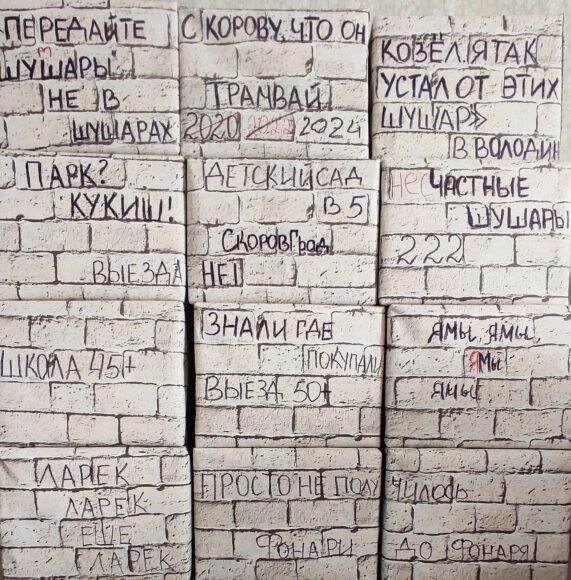 ПЕРЕДАЙТЕ
М
ШУШАРЫ"
НЕ В
ШУШАРАХ
СКОРОВУ, ЧТО ОН
ТРАМВАЙ
2020 2022 2024
КОЗЁЛ. Я ТАК
УСТАЛ ОТ ЭТИХ
ШУШАР»
В. ВОЛОДИН
ПАРК?
КУКИШ!
ВЫЕЗДА
ДЕТСКИЙ САД
В 5
СКОРОВГРАД
НЕТ
НЕСЧАСТНЫЕ
ШУШАРЫ
222
ШКОЛА 45+
ЗНАЛИ ГДЕ
ПОКУПАЛИ
ВЫЕЗД 50+
ЯМЫ, ЯМЫ,
ЯМЫ
ЯМЫ
ЛАРЕК
ЛАРЕК
ЕЩЕ
ЛАРЕК
ПРОСТО НЕ ПОЛУ
ФОНАРИ
ЧИЛОСЬ
ДО ФОНАРЯ